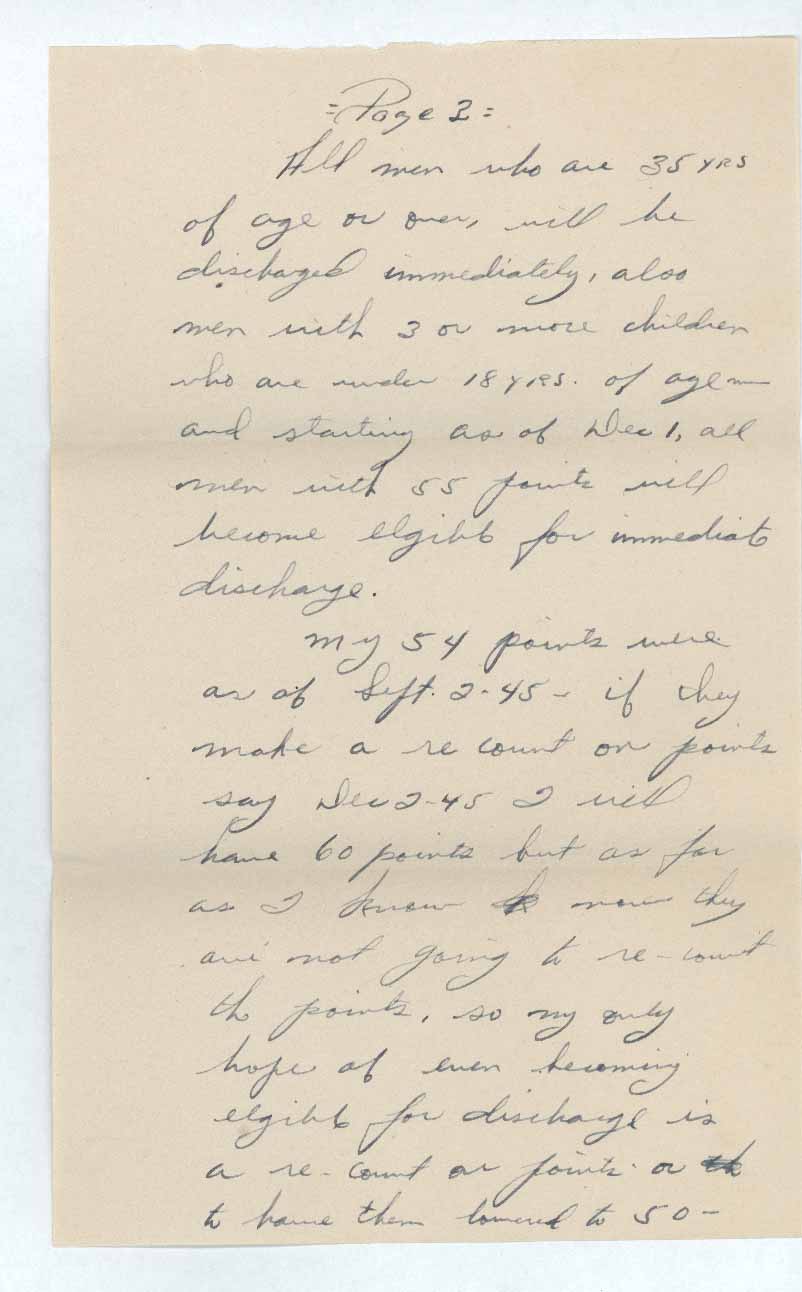 =Page 3=
All men who are 35 YRS
of age or over, will be
discharged immediately, also
men with 3 or more children
who are under 18 YRS. of age —
and starting as of Dec 1, all
men with 55 points will
become elgible for immediate
discharge.
My 54 points were
as of Sept. 2-45 - if they
make a re count on points
say Dec 2-45 I will
have 60 points but as far
as I know now they
are not going to re-count
the points, so my only
hope of even becoming
elgible for discharge is
a re-count on points or
to have them lowered to 50 -